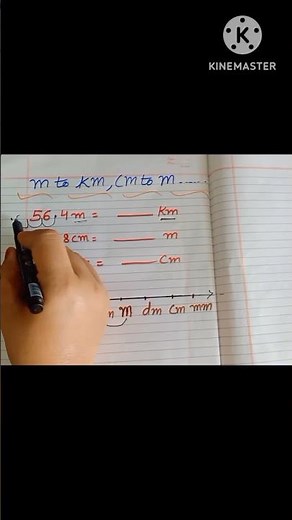 KINEMASTER
m to km, cm to m ......
56.4 m = ____ km
8 cm = ____ m
= ____ cm
m dm cm mm